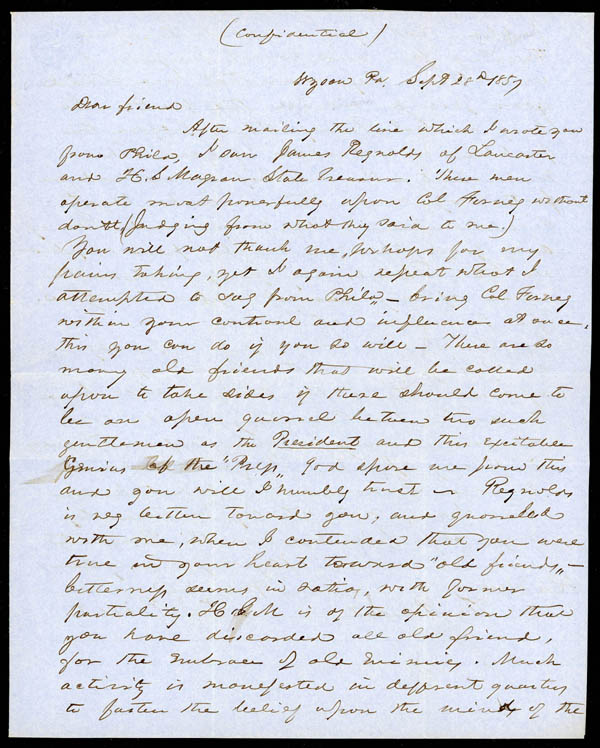 (Confidential)
Wysox Pa. Sept 28th 1857
Dear friend
After mailing the line which I wrote you
from Phila, I saw James Reynolds of Lancaster
and H. S Magraw State Treasurer. These men
operate most powerfully upon Col Forney without
doubt (Judging from what they said to me.)
You will not thank me, perhaps for my
pains taking, yet I again repeat what I
attempted to say from Phila, - bring Col Forney
within your control and influence at once,
this you can do if you so will - There are so
many old friends that will be called
upon to take sides if there should come to
be an open quarrel between two such
gentlemen as the President and this Excitable
Genius of the "Press" God spare me from this
and you will I humbly trust - Reynolds
is very bitter toward you, and quarrelled
with me, when I contended that you were
true in your heart toward "old friends" -
bitterness seems in ratio, with former
partiality. H S M is of the opinion that
you have discarded all old friend,
for the embrace of old Enimies. Much
activity is manefested in diffrent quarters
to fasten the belief upon the minds of the